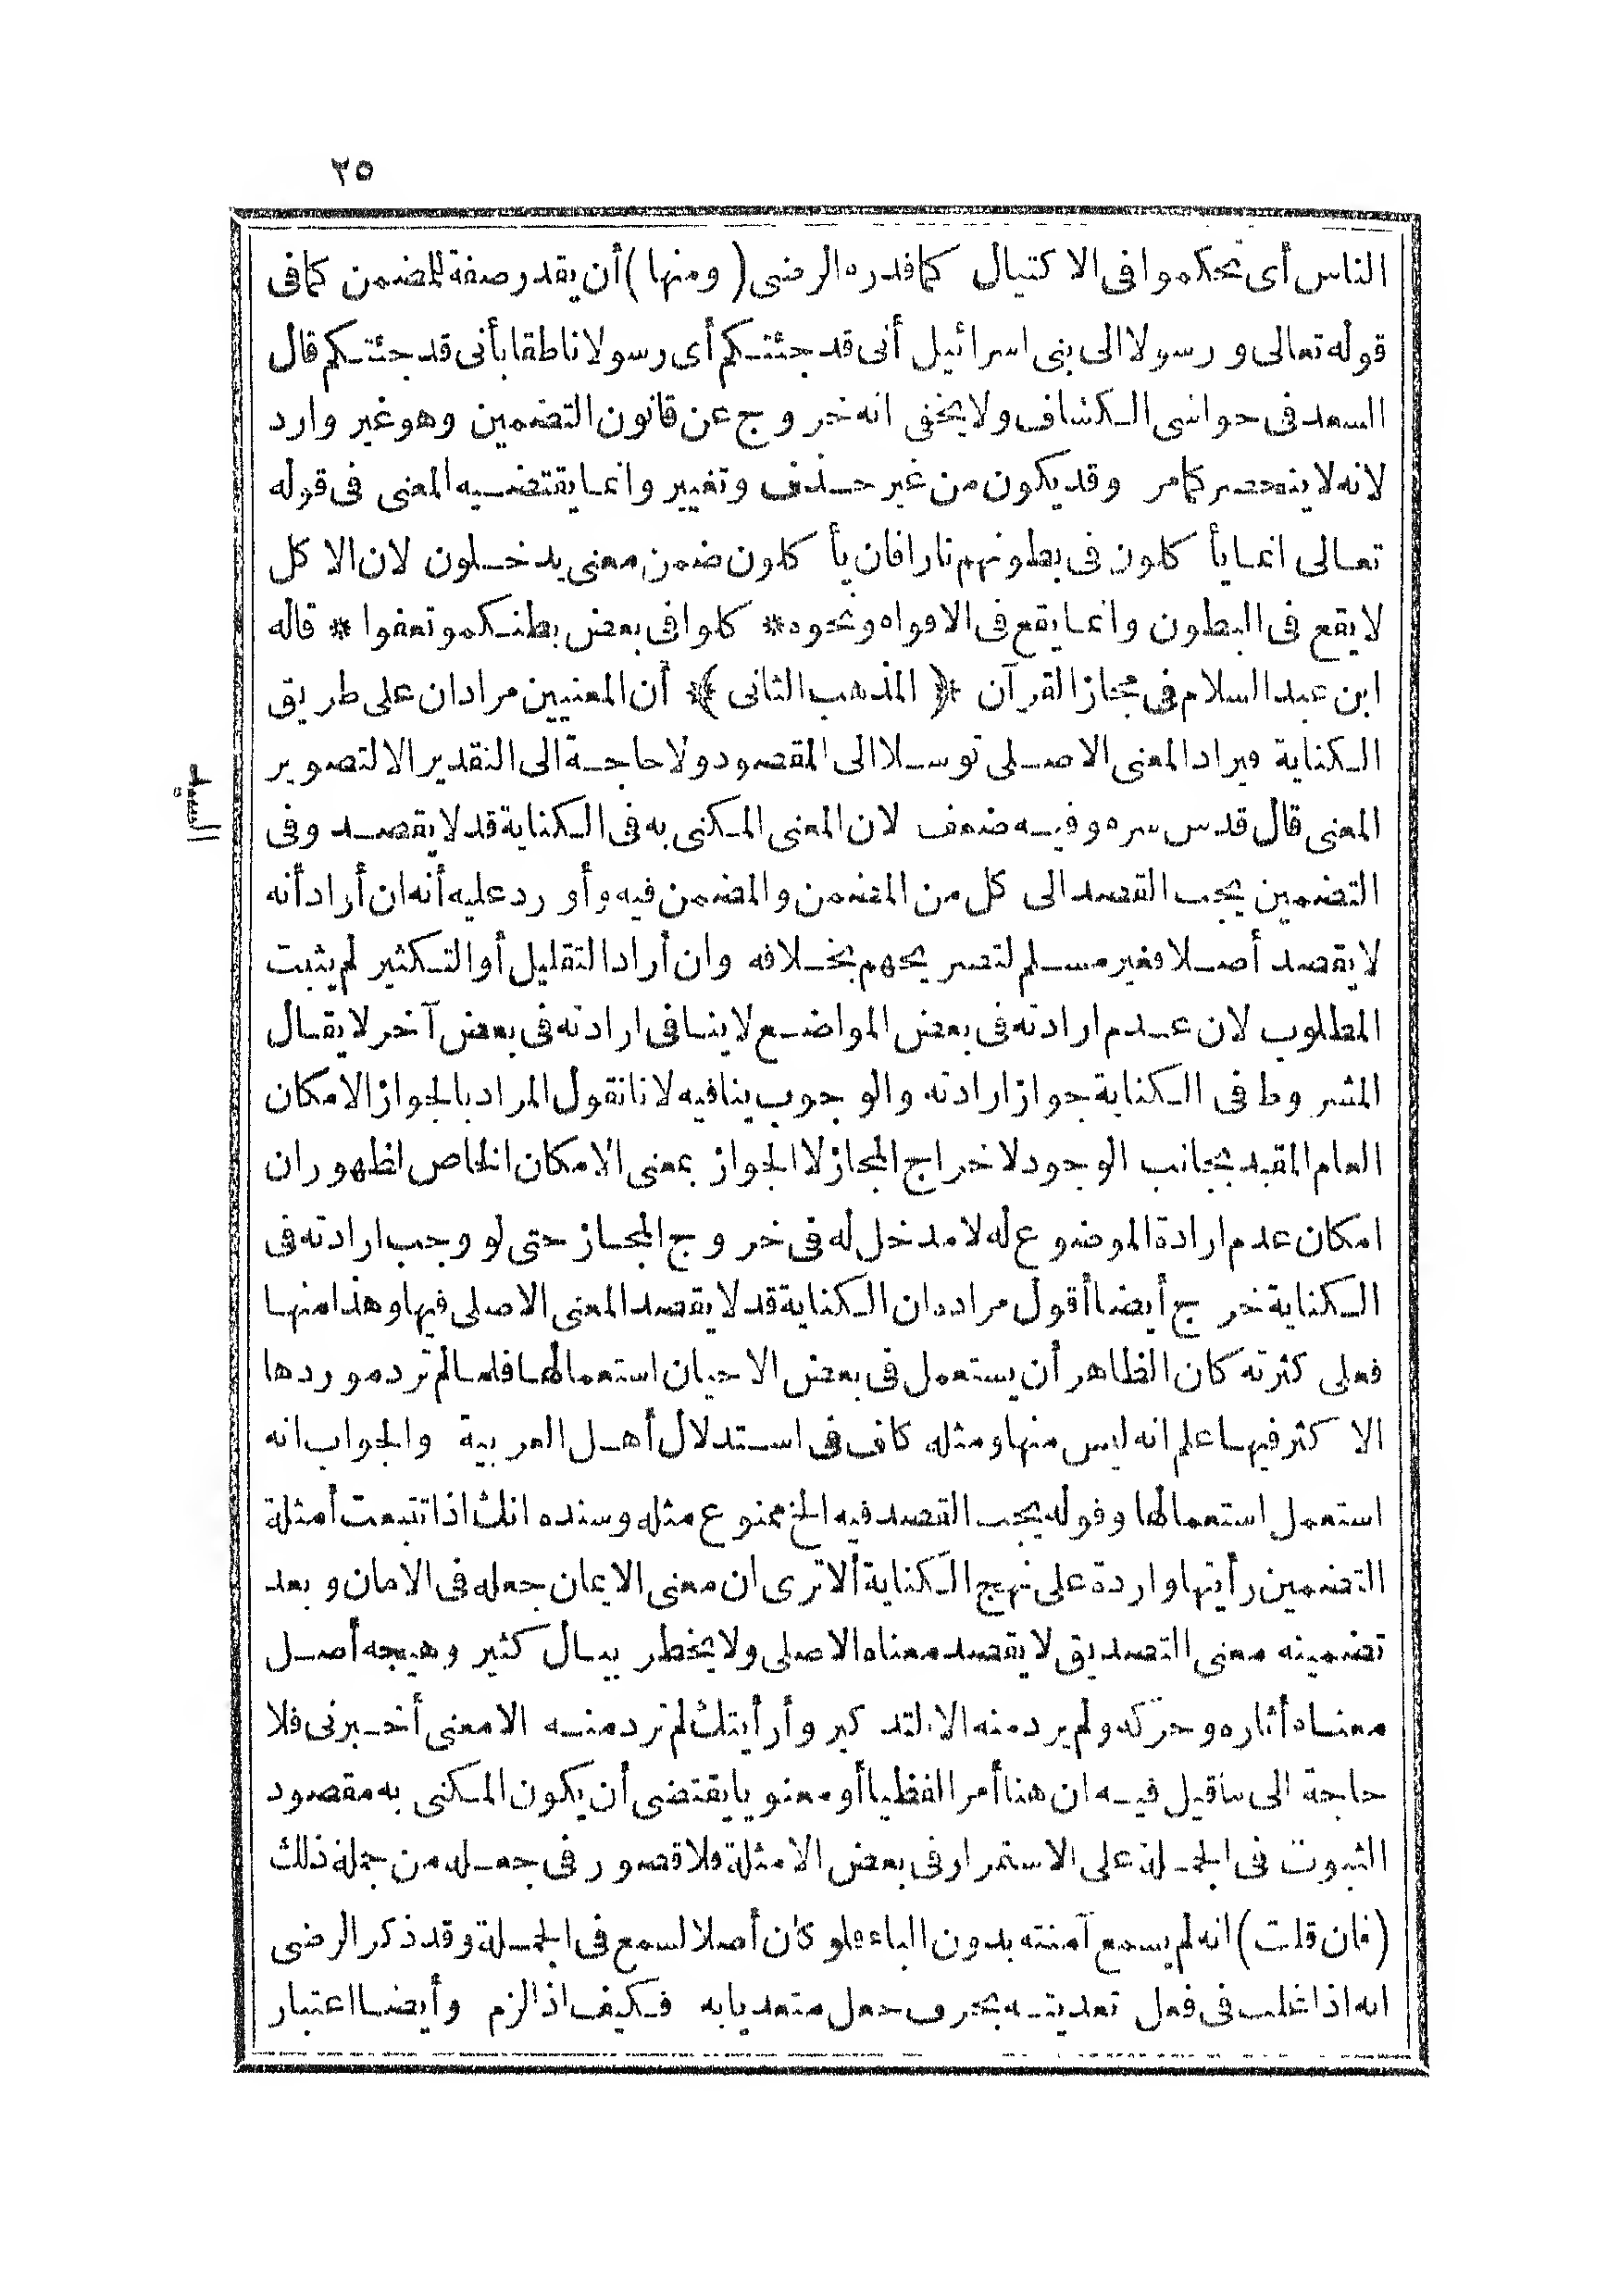 ٢٥
الناس أى تحكموا فى الاكتيال كما قدره الرضى (ومنها) أن يقدر صفة للمضمن كما فى
قوله تعالى ورسولا الى بنى اسرائيل أنى قد جئتكم أى رسولا ناطقا بأنى قد جئتكم قال
السعد فى حواشى الكشاف ولا يخفى انه خروج عن قانون التضمين وهو غير وارد
لانه لا ينحصر كما مر وقد يكون من غير حذف وتغيير وانما يقتضيه المعنى فى قوله
تعالى انما يأكلون فى بطونهم نارا فان يأكلون ضمن معنى يدخلون لان الاكل
لا يقع فى البطون وانما يقع فى الافواه ونحوه * كلوا فى بعض بطنكمو تعفوا * قاله
ابن عبد السلام فى مجاز القرآن * (المذهب الثانى) * أن المعنيين مرادان على طريق
الكناية ويراد المعنى الاصلى توسلا الى المقصود ولا حاجة الى التقدير الا لتصوير
السيد
المعنى قال قدس سره وفيه ضعف لان المعنى المكنى به فى الكناية قد لا يقصد وفى
التضمين يجب القصد الى كل من المضمن والمضمن فيه وأورد عليه أنه ان أراد أنه
لا يقصد أصلا فغير مسلم لتصريحهم بخلافه وان أراد التقليل أو التكثير لم يثبت
المطلوب لان عدم ارادته فى بعض المواضع لا ينافى ارادته فى بعض آخر لا يقال
المشروط فى الكناية جواز ارادته والوجوب ينافيه لانا نقول المراد بالجواز الامكان
العام المقيد بجانب الوجود لاخراج المجاز لا الجواز بمعنى الامكان الخاص لظهور ان
امكان عدم ارادة الموضوع له لا مدخل له فى خروج المجاز حتى لو وجب ارادته فى
الكناية خرج أيضا أقول مراده ان الكناية قد لا يقصد المعنى الاصلى فيها وهذا منها
فعلى كثرته كان الظاهر أن يستعمل فى بعض الاحيان استعمالها فلما لم ترد موردها
الاكثر فيها علم انه ليس منها ومثله كاف فى استدلال أهل العربية والجواب انه
استعمل استعمالها وقوله يجب القصد فيه الخ ممنوع مثله وسنده انك اذا تتبعت أمثلة
التضمين رأيتها واردة على نهج الكناية ألا ترى ان معنى الايمان جعله فى الامان وبعد
تضمينه معنى التصديق لا يقصد معناه الاصلى ولا يخطر ببال كثير وهيجه أصل
معناه أثاره وحركه ولم يرد منه الا التذكير وأرأيتك لم ترد منه الا معنى أخبرنى فلا
حاجة الى ما قيل فيه ان هنا أمرا لفظيا أو معنويا يقتضى أن يكون المكنى به مقصود
الثبوت فى الجملة على الاستمرار فى بعض الامثلة فلا قصور فى جعله من جملة ذلك
(فان قلت) انه لم يسمع آمنته بدون الباء فلو كان أصلا لسمع فى الجملة وقد ذكر الرضى
انه اذا غلب فى فعل تعديته بحرف جعل متعديا به فكيف اذا لزم وأيضا اعتبار